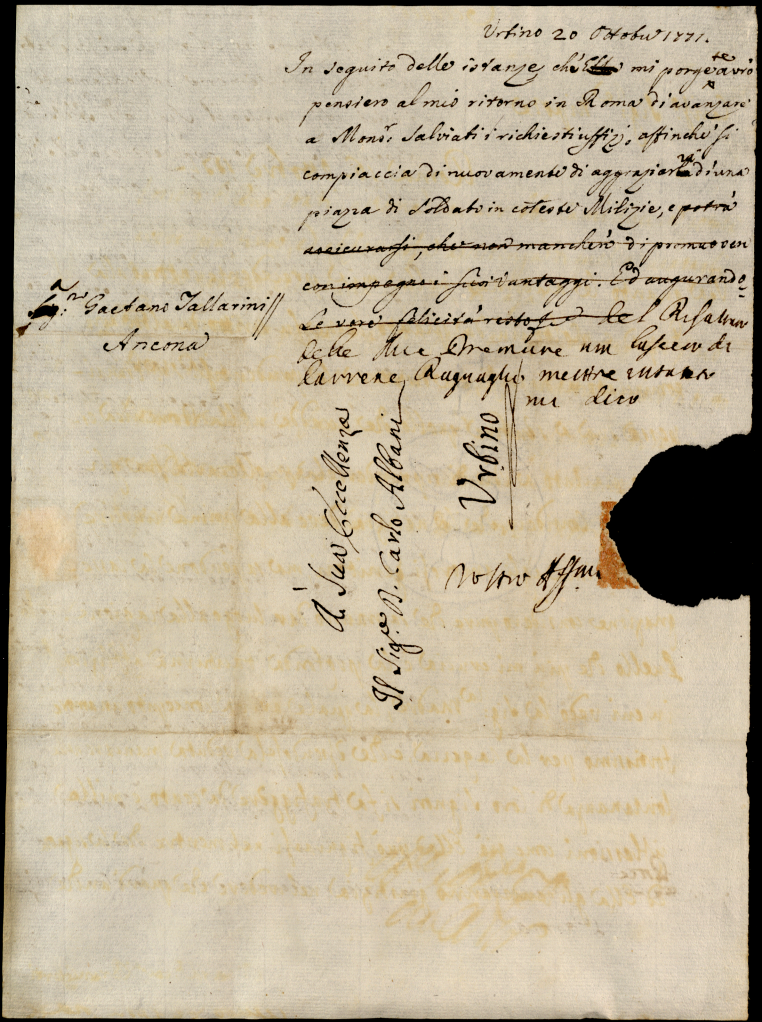 Urbino 20 Ottobre 1771.
In seguito delle istanze, ché Ella mi porgete avrò
pensiero al mio ritorno in Roma di avanzare
a Monsr. Salviati i richiesti uffizj, affinché si
compiaccia di nuovamente di aggraziarvi d'una
piazza di Soldato in coteste Milizie, e potrà
assicurarsi, che non mancherò di promuovere
con impegno i suoi vantaggi. Ed augurando-
Le vere felicità resto
delle mie Premure un lascerò di
darvene Ragguaglio mentre intanto
mi dico
Sigr. Gaetano Tallarini
Ancona
A Sua Eccellenza
Il Sigre. D. Carlo Albani
Urbino
Vostro Affmo